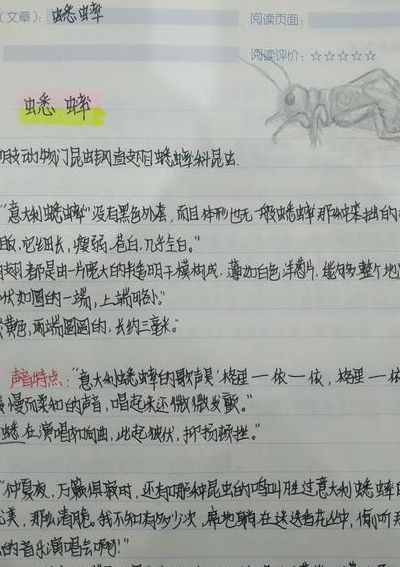 （文章）：蟋蟀
阅读页面：
阅读评价：☆☆☆☆☆
蟋蟀
肢动物门昆虫纲直翅目蟋蟀科昆虫.
"意大利蟋蟀"没有黑色外套，而且体形也无一般蟋蟀那种笨拙的
它细长，瘦弱，苍白，几乎全白。"
翅都是由一片宽大的半透明干膜构成，薄如白色洋葱片，能够整个地
状如圆的一端，上端略小。"
黄色，两端圆圆的，长约三毫米。"
声音特点："意大利蟋蟀的歌声是'格里——依——依，格里——依
缓慢而柔和的声，唱起来还微微发颤。"
蟋在演唱协奏曲，此起彼伏，抑扬顿挫。"
"仲夏夜，万籁俱寂时，还有哪种昆虫的鸣叫胜过意大利蟋蟀
优美，那么清脆。我不知有多少次，席地躺在迷迭香花丛中，偷听那
的音乐演唱会啊！"